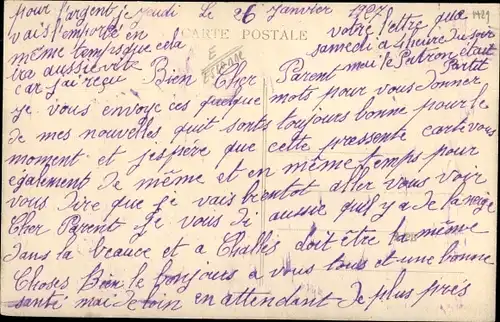 Jeudi Le 26 Janvier 1907
1429
CARTE POSTALE
Bien Cher Parent
je vous envoye ces quelque mots pour vous donner
de mes nouvelles qui sonts toujours bonne pour le
moment et j'espère que cette pressente carte vous
également de même et en même temps pour
vous dire que je vais bientot aller vous voir
Cher Parent je vous di aussie qu'il y a de la neige
dans la beauce et a Challes doit être la même
Choses Bien le bonjours a vous tous et une bonne
santé mai de loin en attendant de plus près
pour l'argent je
vais l'emporté en
même temps que cela
ira aussie vite
car j'ai reçu
votre lettre que
samedi a 4 heure du soir
mai le Patron était
Partit